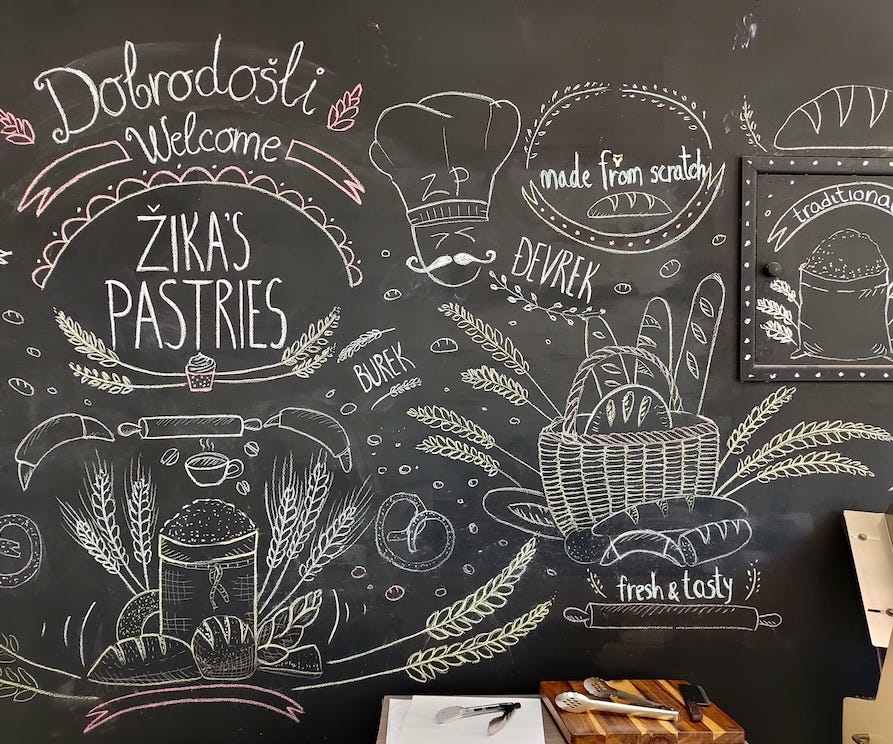 Dobrodošli
Welcome
ŽIKA'S
PASTRIES
BUREK
ZP
ĐEVREK
made from scratch
fresh & tasty
traditional